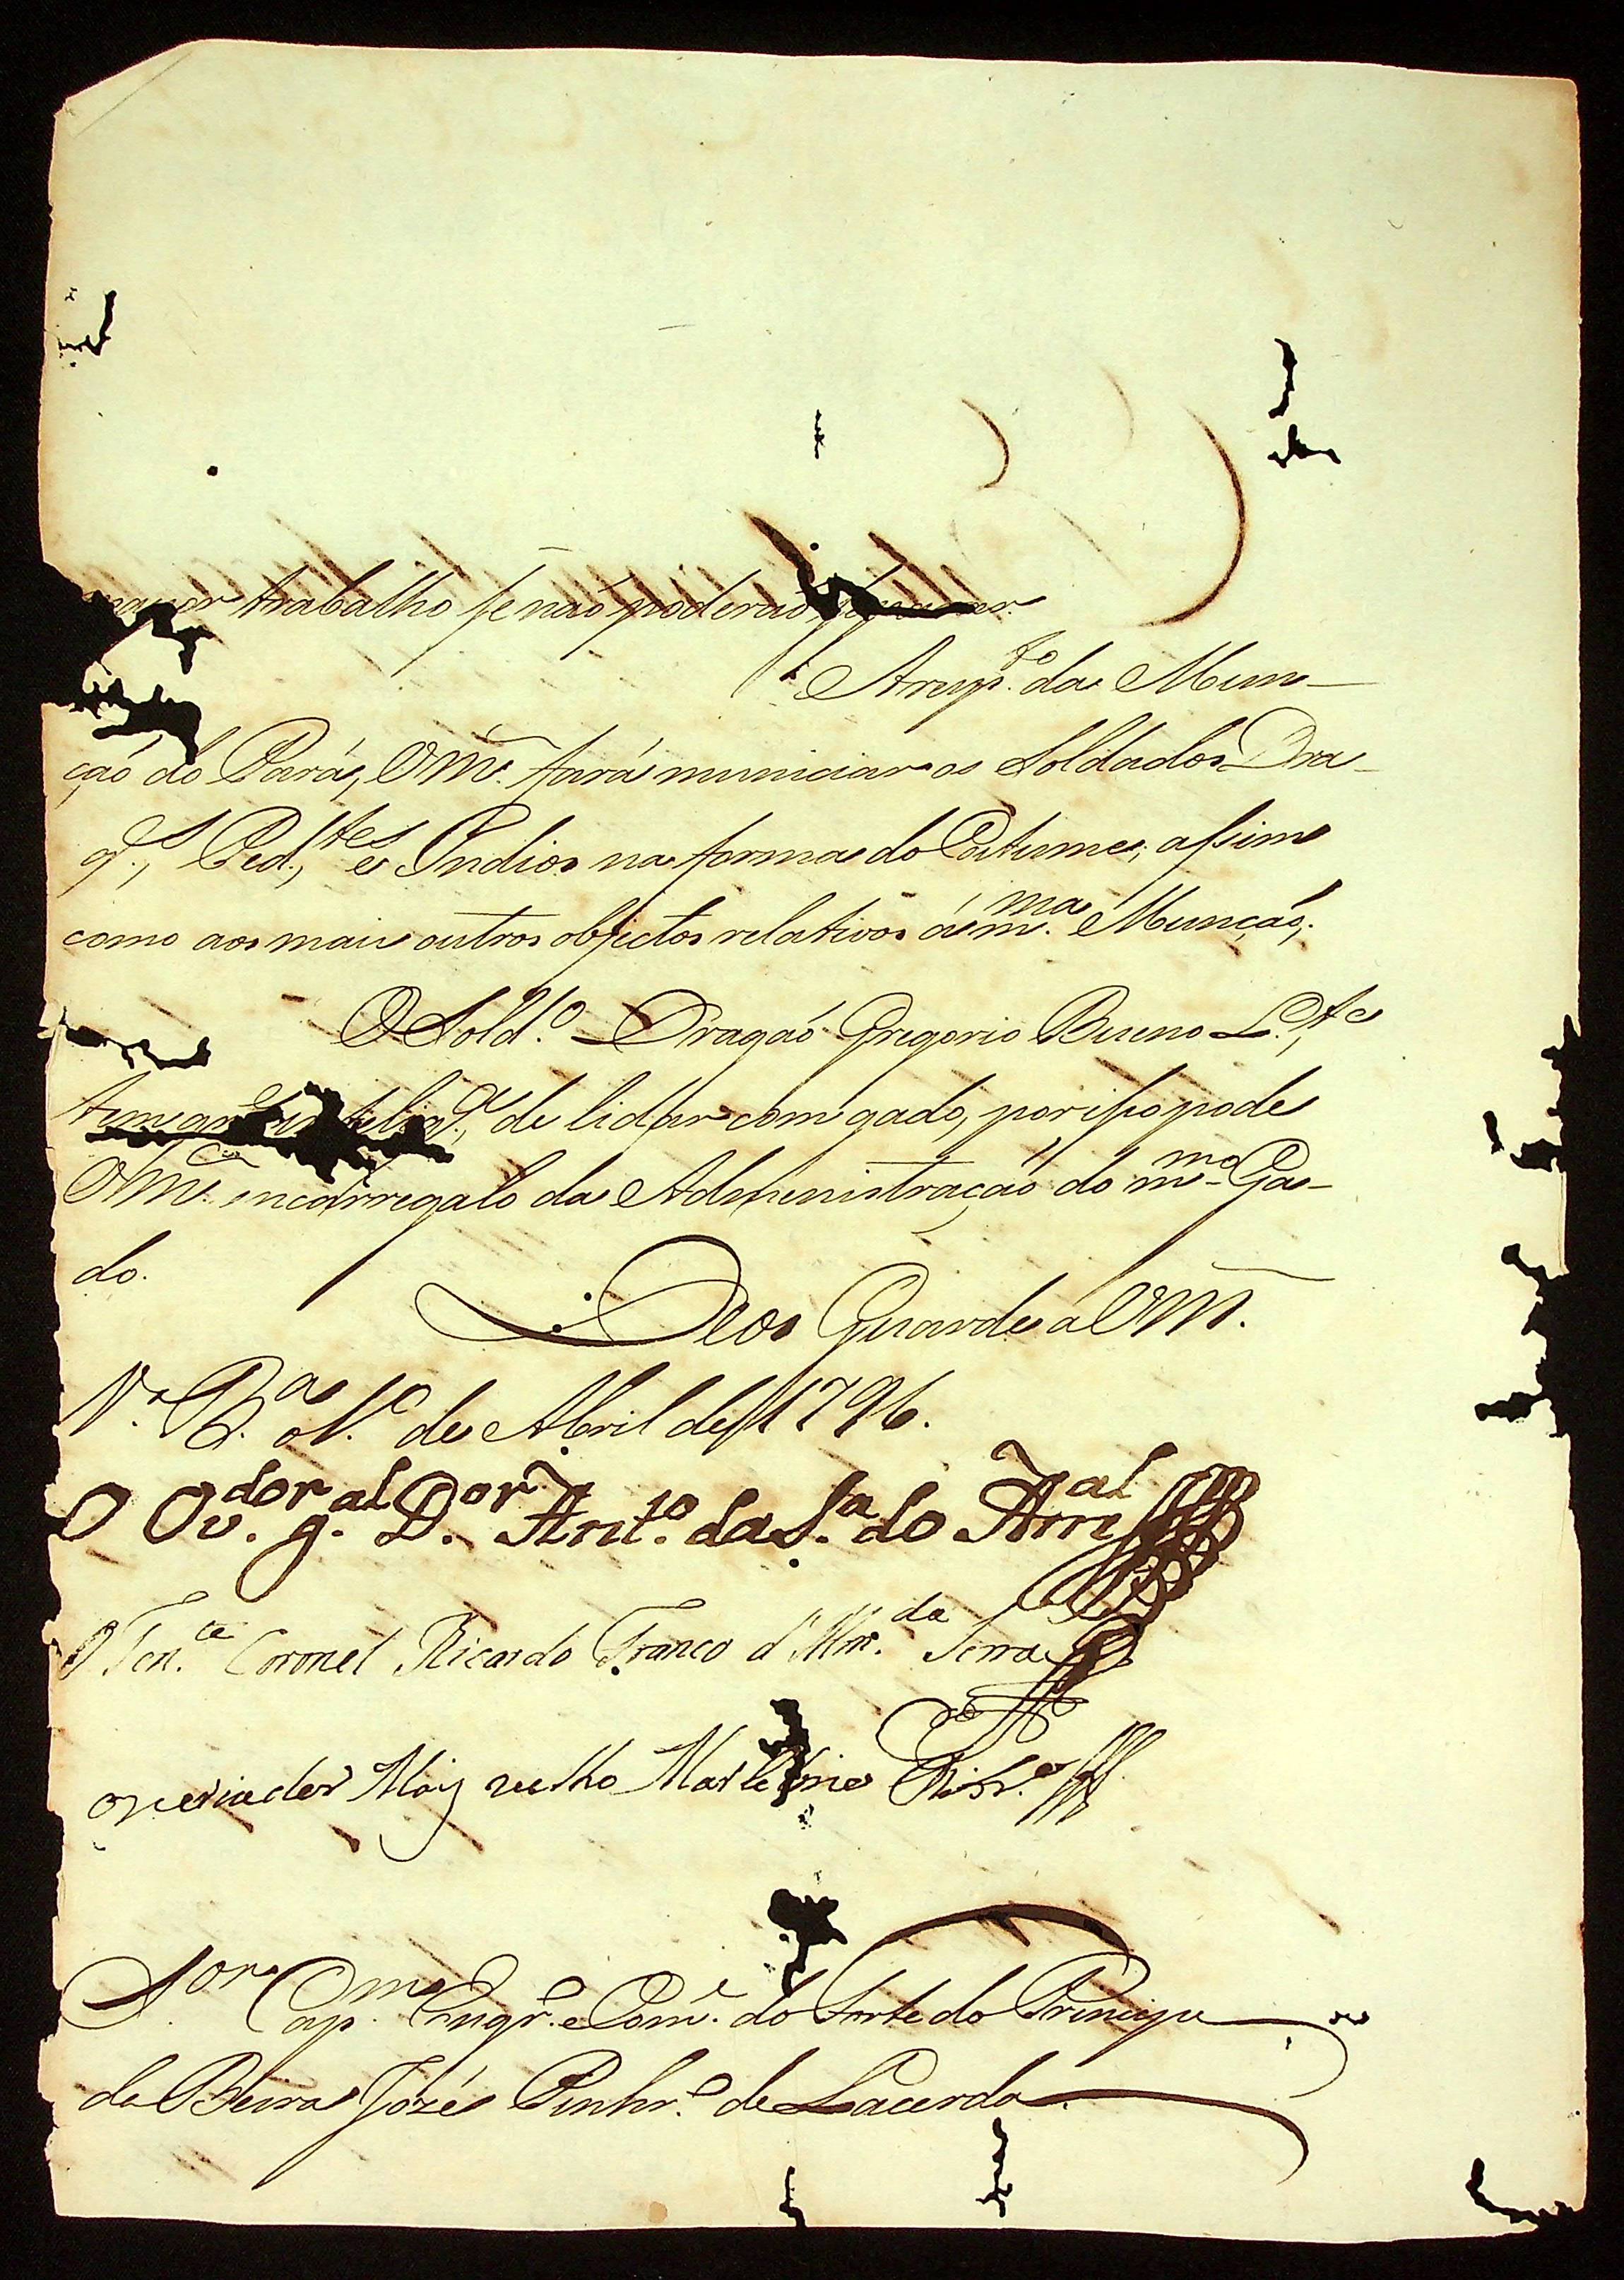 mayor trabalho se não poderão
A resp.to da Mun-
ção do Pará, Vm.ce fará municiar os Soldados Dra-
g.s, Ped.tes, e Indios na forma do Custume; assim
como aos mais outros objectos relativos á m.ma Munção;
O Sold.o Dragaõ Gregorio Bueno
tem de lidar com gado, por isso pode
Vm.ce encarregalo da Administração do m.mo Ga-
do.
Deos Guarde a Vm.
V.a B.a de Abril de 1796.
O Ouv.dor g.al D.or Ant.o da S.a do Am.al
O Ten.te Coronel Ricardo Franco d'Alm.da Serra
o veriador
S.or Cap.m Engr.o e Com.e do Forte do Principe
da Beira Jozé Pinhr.o de Lacerda